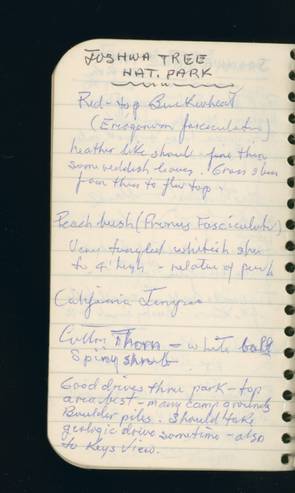 JOSHWA TREE
NAT. PARK
Red-top Buckwheat
(Eriogonum fasciculatum)
heather like
some reddish leaves. Grass
from
Peach bush (Prunus Fasciculata)
Very tangled whitish
to 4' high - relative of
California
Cotton Thorn - white balls
Spiny shrub
Good drives thru park - top
area best - many camp grounds
Boulder piles. Should take
geologic drive sometime - also
to Keys View.